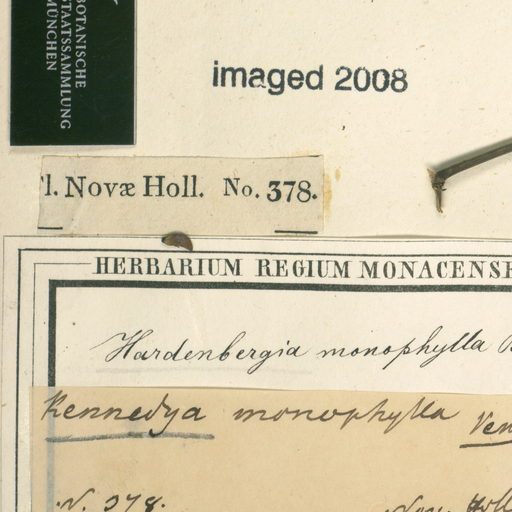 BOTANISCHE
STAATSSAMMLUNG
MÜNCHEN
imaged 2008
l. Novæ Holl. No. 378.
HERBARIUM REGIUM MONACENSE
Hardenbergia monophylla B
Kennedya monophylla Ven
N. 378. Nov. Holl